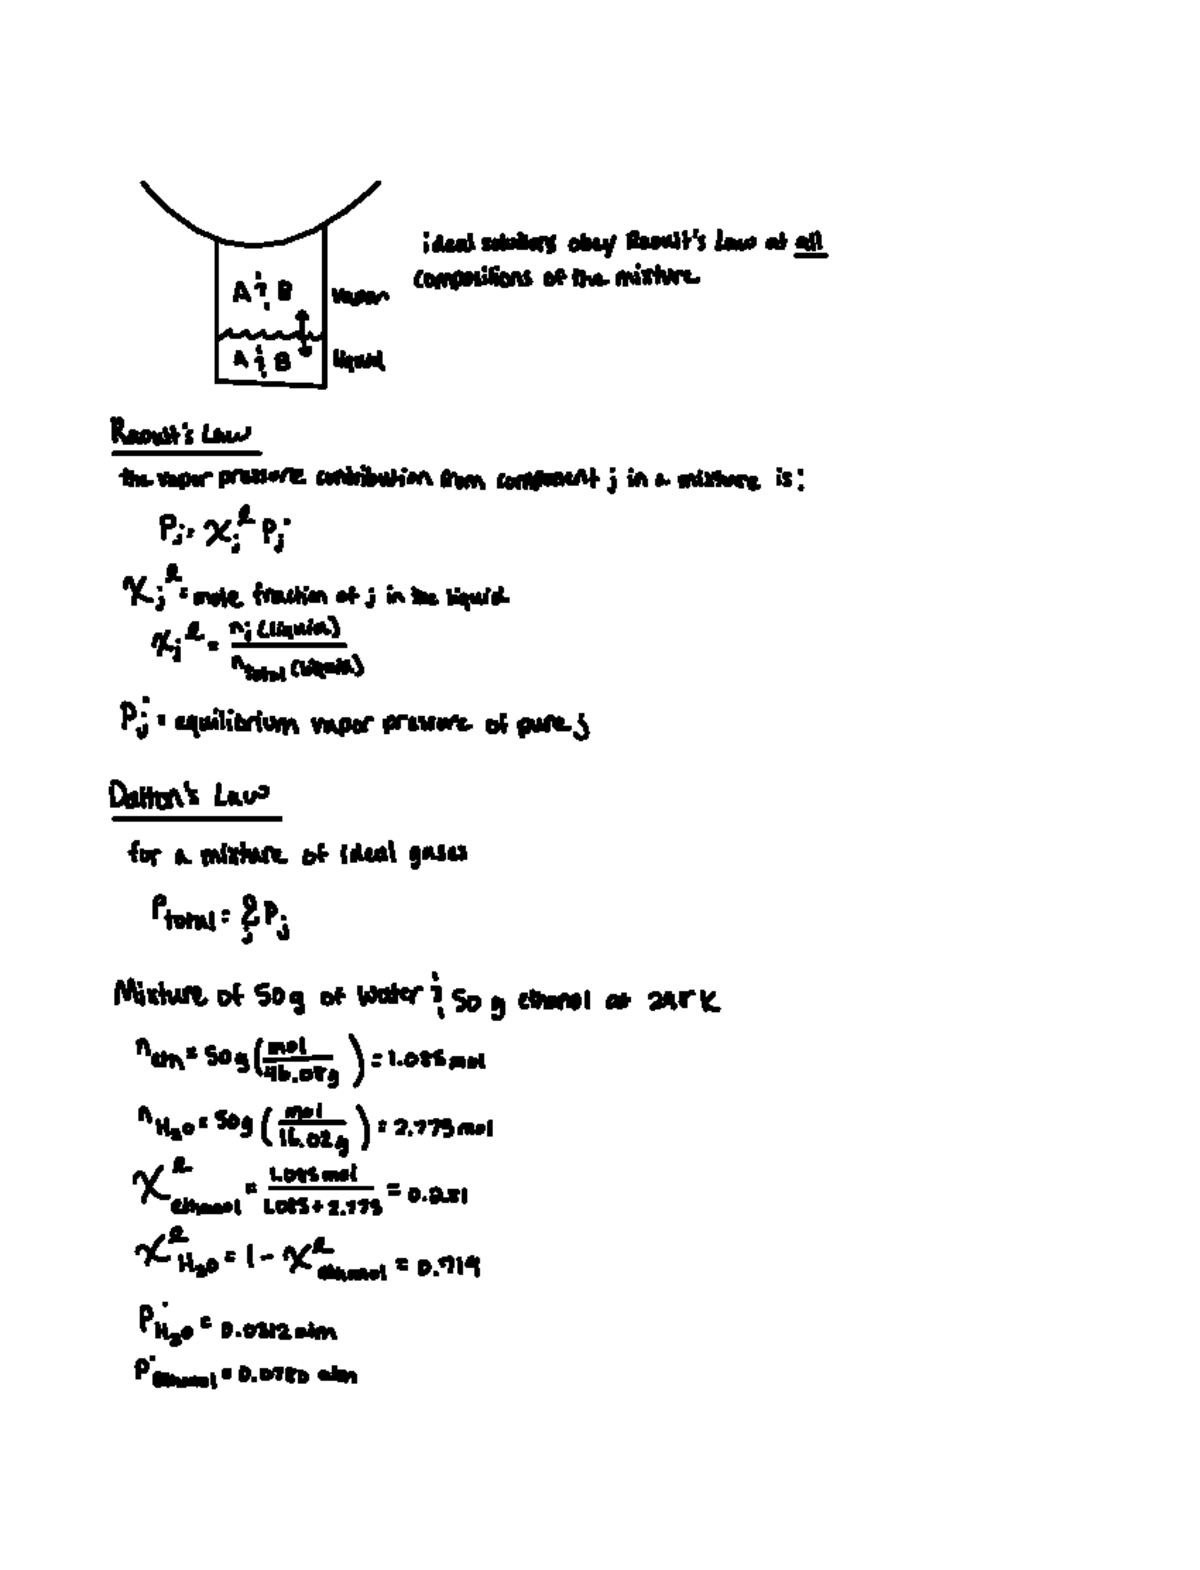 ideal solutions obey Raoult's Law at all
compositions of the mixture
A & B vapor
A & B liquid
Raoult's Law
the vapor pressure contribution from component j in a mixture is:
Pj = χj^ℓ Pj°
χj^ℓ = mole fraction of j in the liquid
χj^ℓ = nj (liquid) / ntotal (liquid)
Pj° = equilibrium vapor pressure of pure j
Dalton's Law
for a mixture of ideal gases
Ptotal = Σj Pj
Mixture of 50g of water & 50g ethanol at 298 K
neth = 50g (mol / 46.08g) = 1.085 mol
nH2O = 50g (mol / 18.02g) = 2.775 mol
χ^ℓ ethanol = 1.085 mol / 1.085 + 2.775 = 0.281
χ^ℓ H2O = 1 - χ^ℓ ethanol = 0.719
P°H2O = 0.0312 atm
P°ethanol = 0.0780 atm